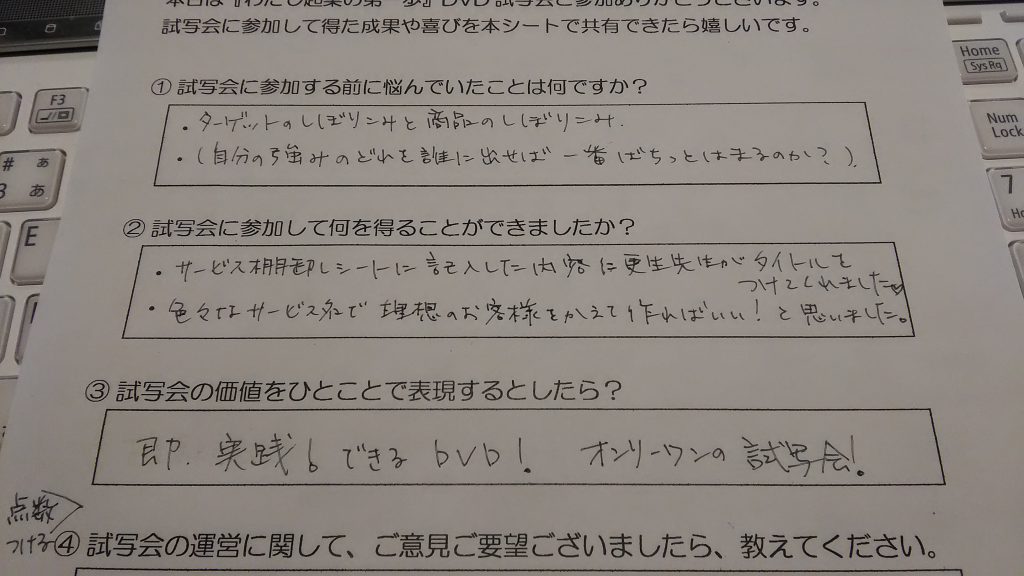 本日は『わたし起業の第一歩』DVD試写会ご参加ありがとうございます。
試写会に参加して得た成果や喜びを本シートで共有できたら嬉しいです。
① 試写会に参加する前に悩んでいたことは何ですか？
・ターゲットのしぼりこみと商品のしぼりこみ.
・(自分の強みのどれを誰に出せば一番ばちっとはまるのか？).
② 試写会に参加して何を得ることができましたか？
・サービス棚卸しシートに記入した内容に更生先生がタイトルを
つけてくれました♥
・色々なサービス名で理想のお客様をかえて作ればいい！と思いました。
③ 試写会の価値をひとことで表現するとしたら？
即.実践！できるDVD！ オンリーワンの試写会！
点数
つける
④ 試写会の運営に関して、ご意見ご要望ございましたら、教えてください。
F3
# ぁ
3 あ
E
Home
SysRq
Num
Lock
7